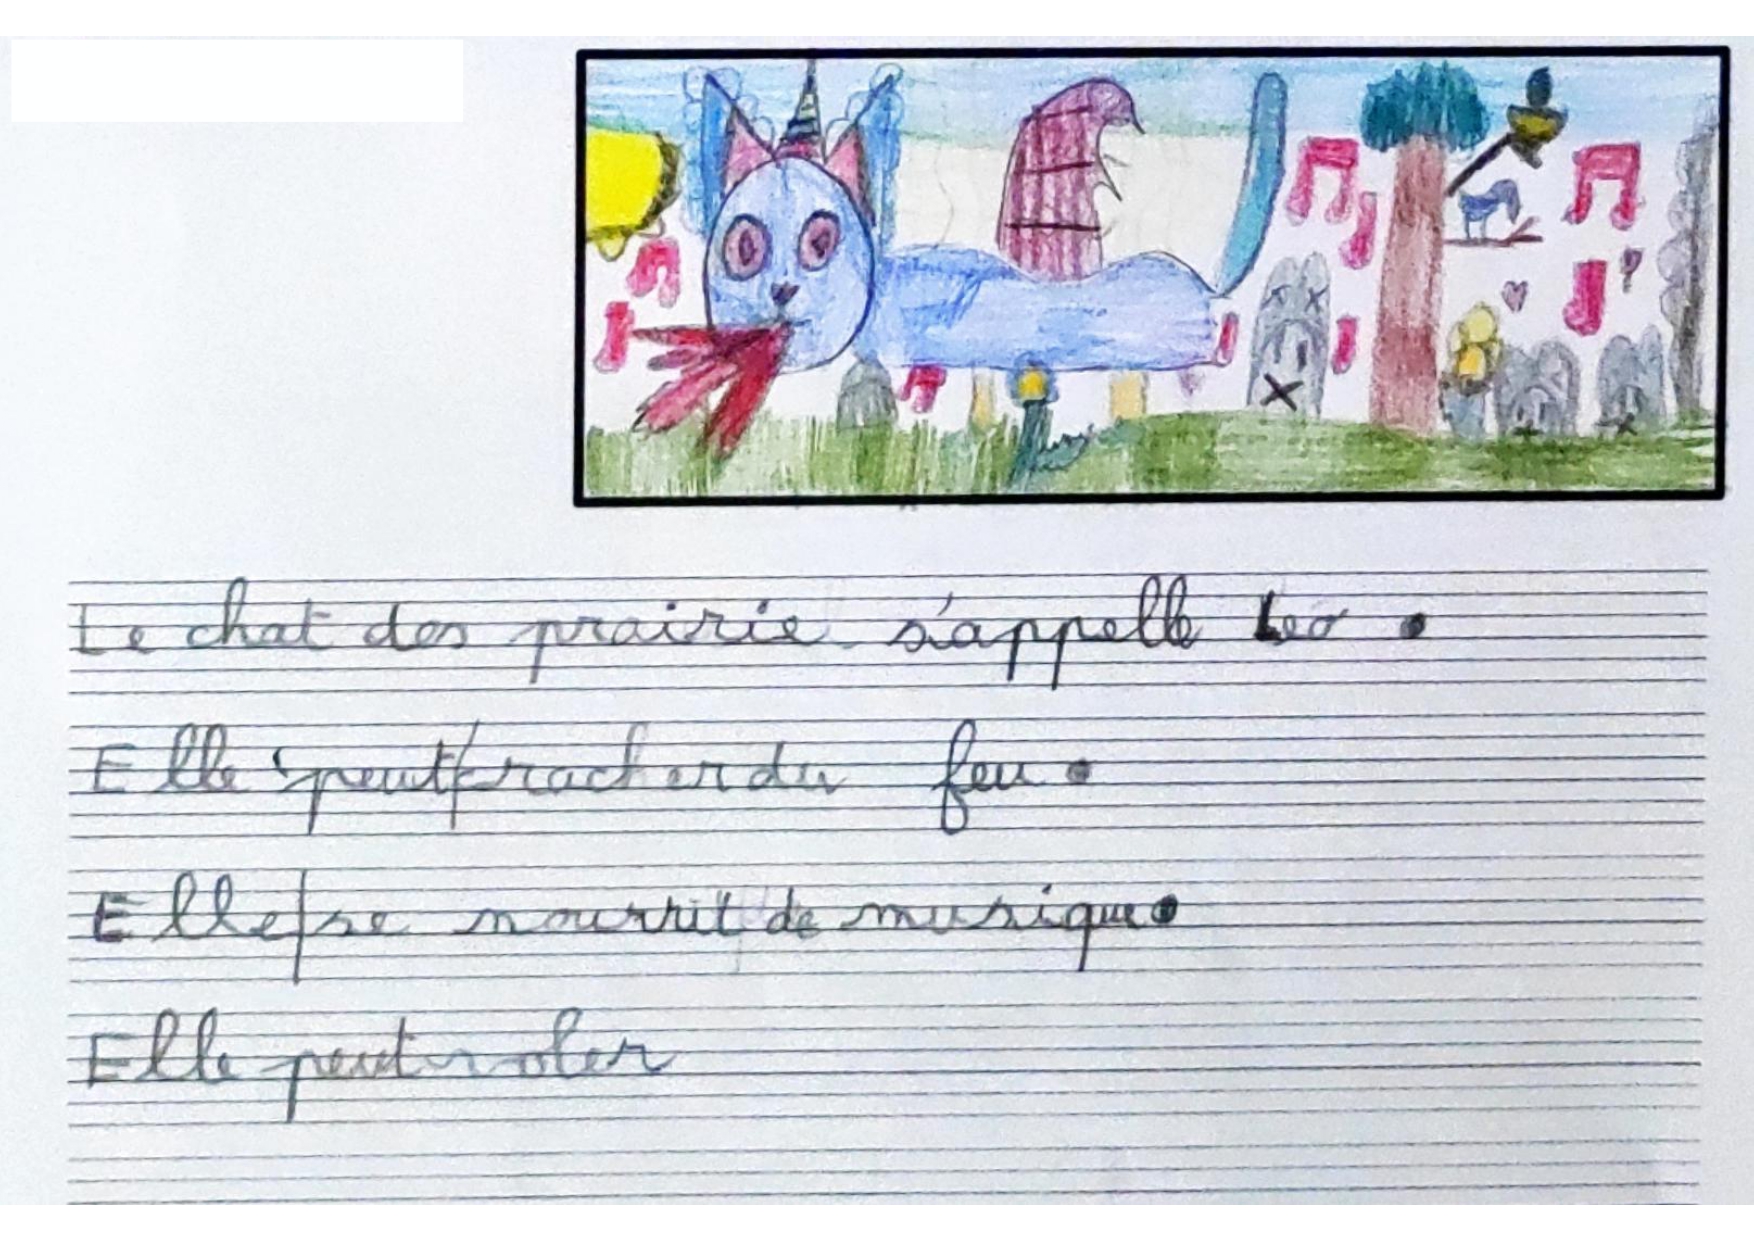 Le chat des prairie s'appelle Léo.
Elle peut cracher du feu.
Elle se nourrit de musique.
Elle peut voler